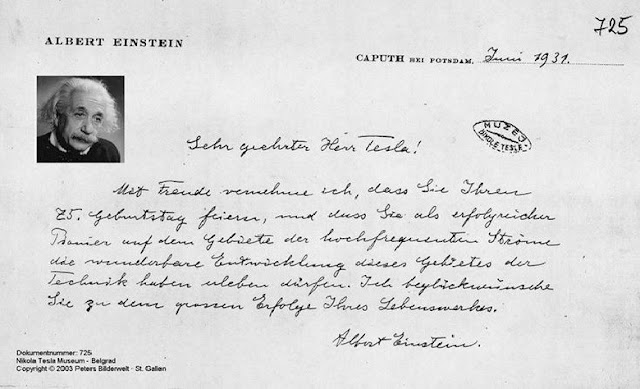 725
ALBERT EINSTEIN
CAPUTH BEI POTSDAM, Juni 1931.
MUZEJ NIKOLE TESLE
Sehr geehrter Herr Tesla!
Mit Freude vernehme ich, dass Sie Ihren
75. Geburtstag feiern, und dass Sie als erfolgreicher
Pionier auf dem Gebiete der hochfrequenten Ströme
die wunderbare Entwicklung dieses Gebietes der
Technik haben erleben dürfen. Ich beglückwünsche
Sie zu dem grossen Erfolge Ihres Lebenswerkes.
Albert Einstein.
Dokumentnummer: 725
Nikola Tesla Museum - Belgrad
Copyright © 2003 Peters Bilderwelt · St. Gallen